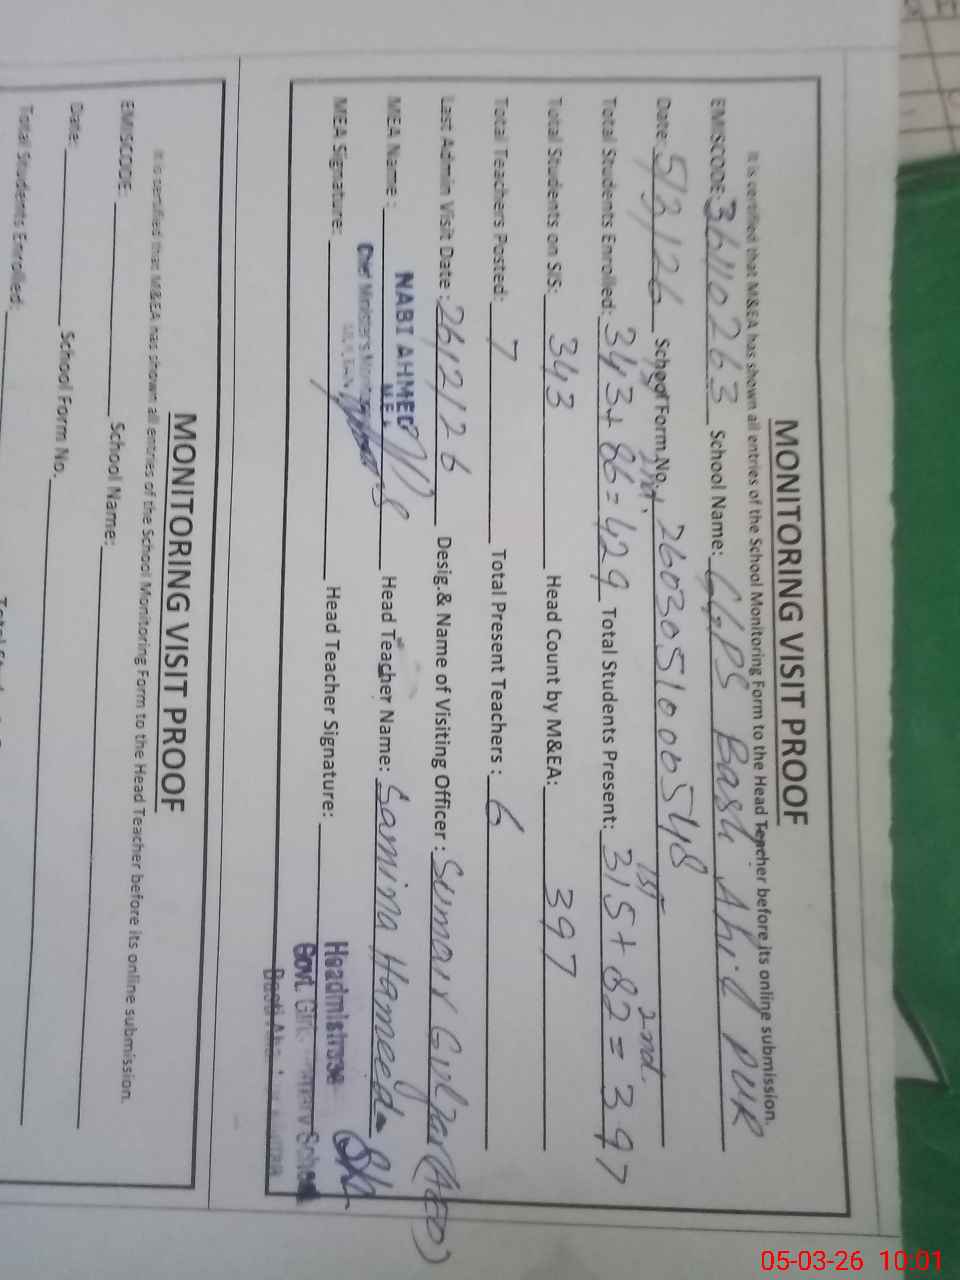 MONITORING VISIT PROOF
It is certified that M&EA has shown all entries of the School Monitoring Form to the Head Teacher before its online submission.
EMISCODE: 36110263 School Name: GGPS Basti Ahid PUR
Date: 5/2/26 School Form No. 260305100548
1st 2nd 1st 2nd
Total Students Enrolled: 343+86=429 Total Students Present: 315+82=397
Total Students on SIS: 343 Head Count by M&EA: 397
Total Teachers Posted: 7 Total Present Teachers: 6
Last Admin Visit Date: 26/2/26 Desig.& Name of Visiting Officer: Sumair Gulzar (AEO)
MEA Name: NABI AHMED Head Teacher Name: Samina Hameed
M.E.A
Chief Minister's
MEA Signature: Head Teacher Signature:
Headmistress
Govt. Girls Primary School
MONITORING VISIT PROOF
It is certified that M&EA has shown all entries of the School Monitoring Form to the Head Teacher before its online submission.
EMISCODE: School Name:
Date: School Form No.
Total Students Enrolled:
05-03-26 10:01